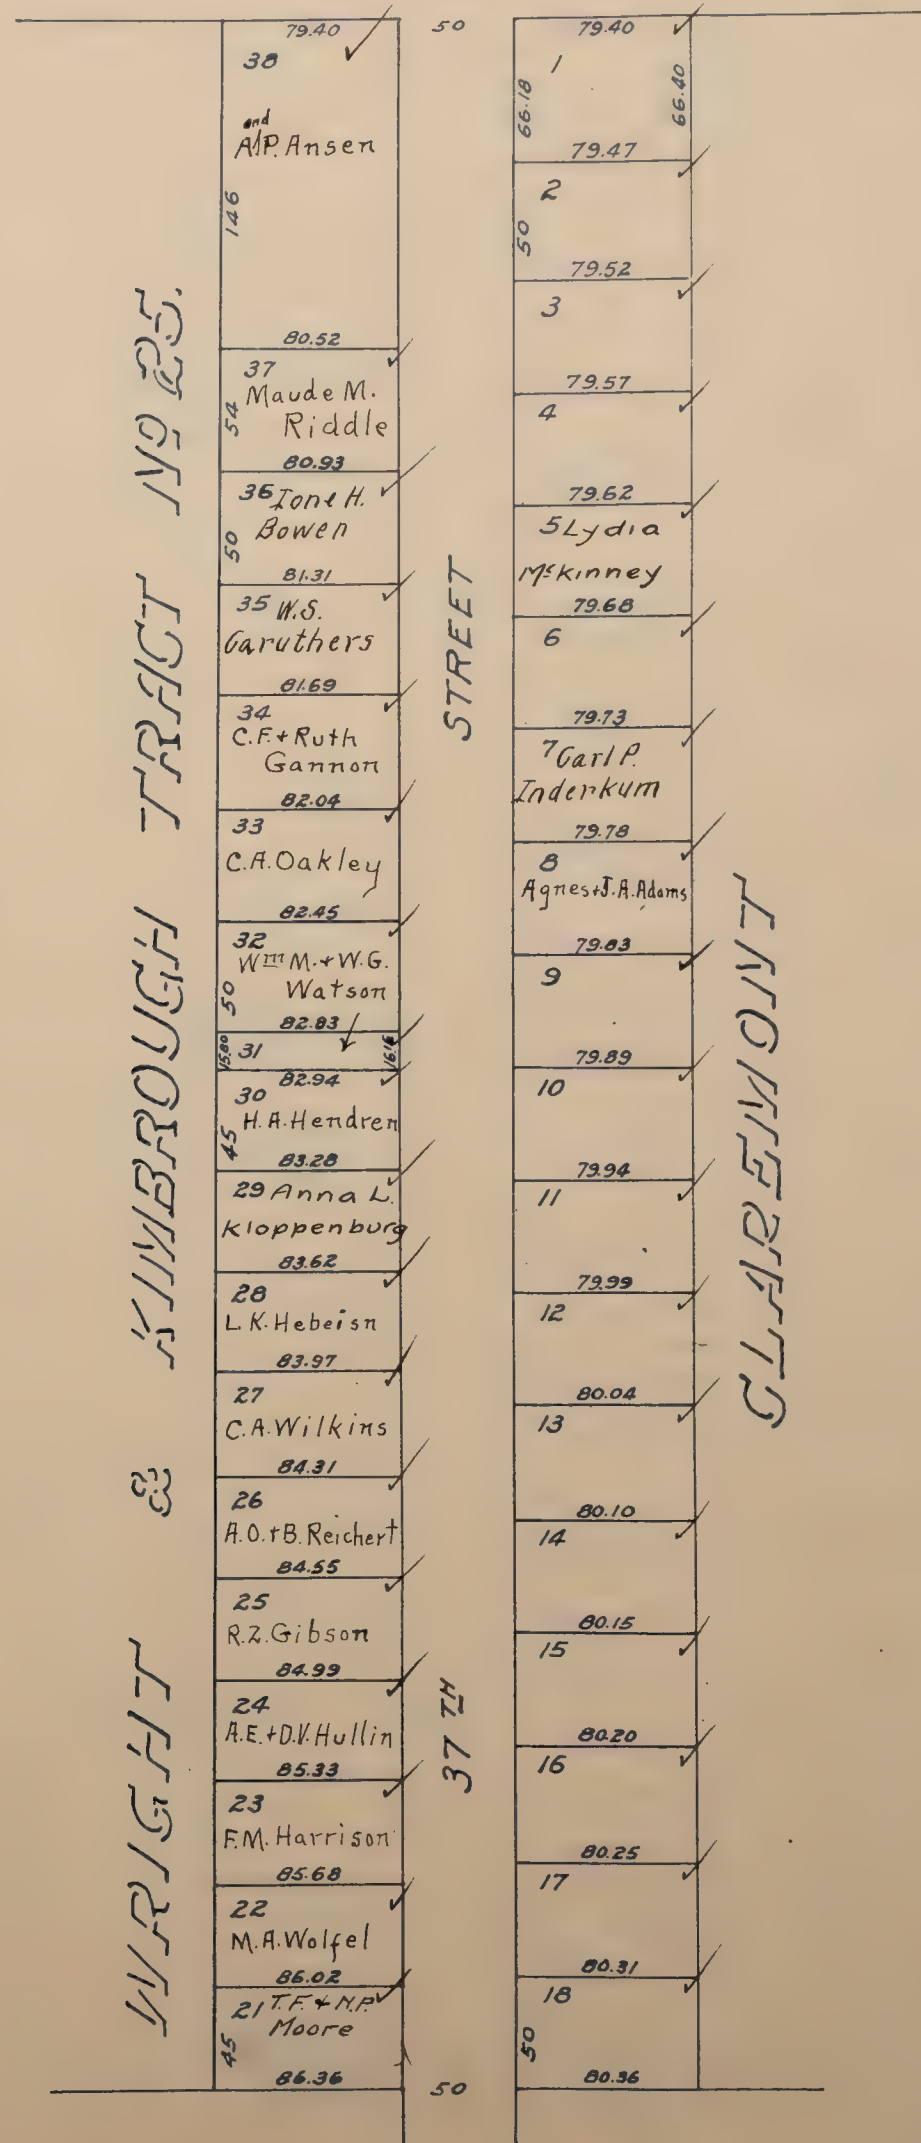 WRIGHT & KIMBROUGH TRACT Nº 25.
79.40
38
and
A.P. Ansen
146
80.52
37
Maude M.
Riddle
54
80.93
36 Ione H.
Bowen
50
81.31
35 W.S.
Caruthers
81.69
34
C.F. + Ruth
Gannon
82.04
33
C.A. Oakley
82.45
32
Wm M. + W.G.
Watson
50
82.83
15.80
31
16.16
82.94
30
H.A. Hendren
45
83.28
29 Anna L.
Kloppenburg
83.62
28
L.K. Hebeisn
83.97
27
C.A. Wilkins
84.31
26
A.O. + B. Reichert
84.55
25
R.Z. Gibson
84.99
24
A.E. + D.V. Hullin
85.33
23
F.M. Harrison
85.68
22
M.A. Wolfel
86.02
21 T.F. + N.P.
Moore
45
86.36
50
37TH STREET
50
79.40
1
66.18
66.40
79.47
2
50
79.52
3
79.57
4
79.62
5 Lydia
McKinney
79.68
6
79.73
7 Carl P.
Inderkum
79.78
8
Agnes + J.A. Adams
79.83
9
79.89
10
79.94
11
79.99
12
80.04
13
80.10
14
80.15
15
80.20
16
80.25
17
80.31
18
50
80.36
CLAREMONT